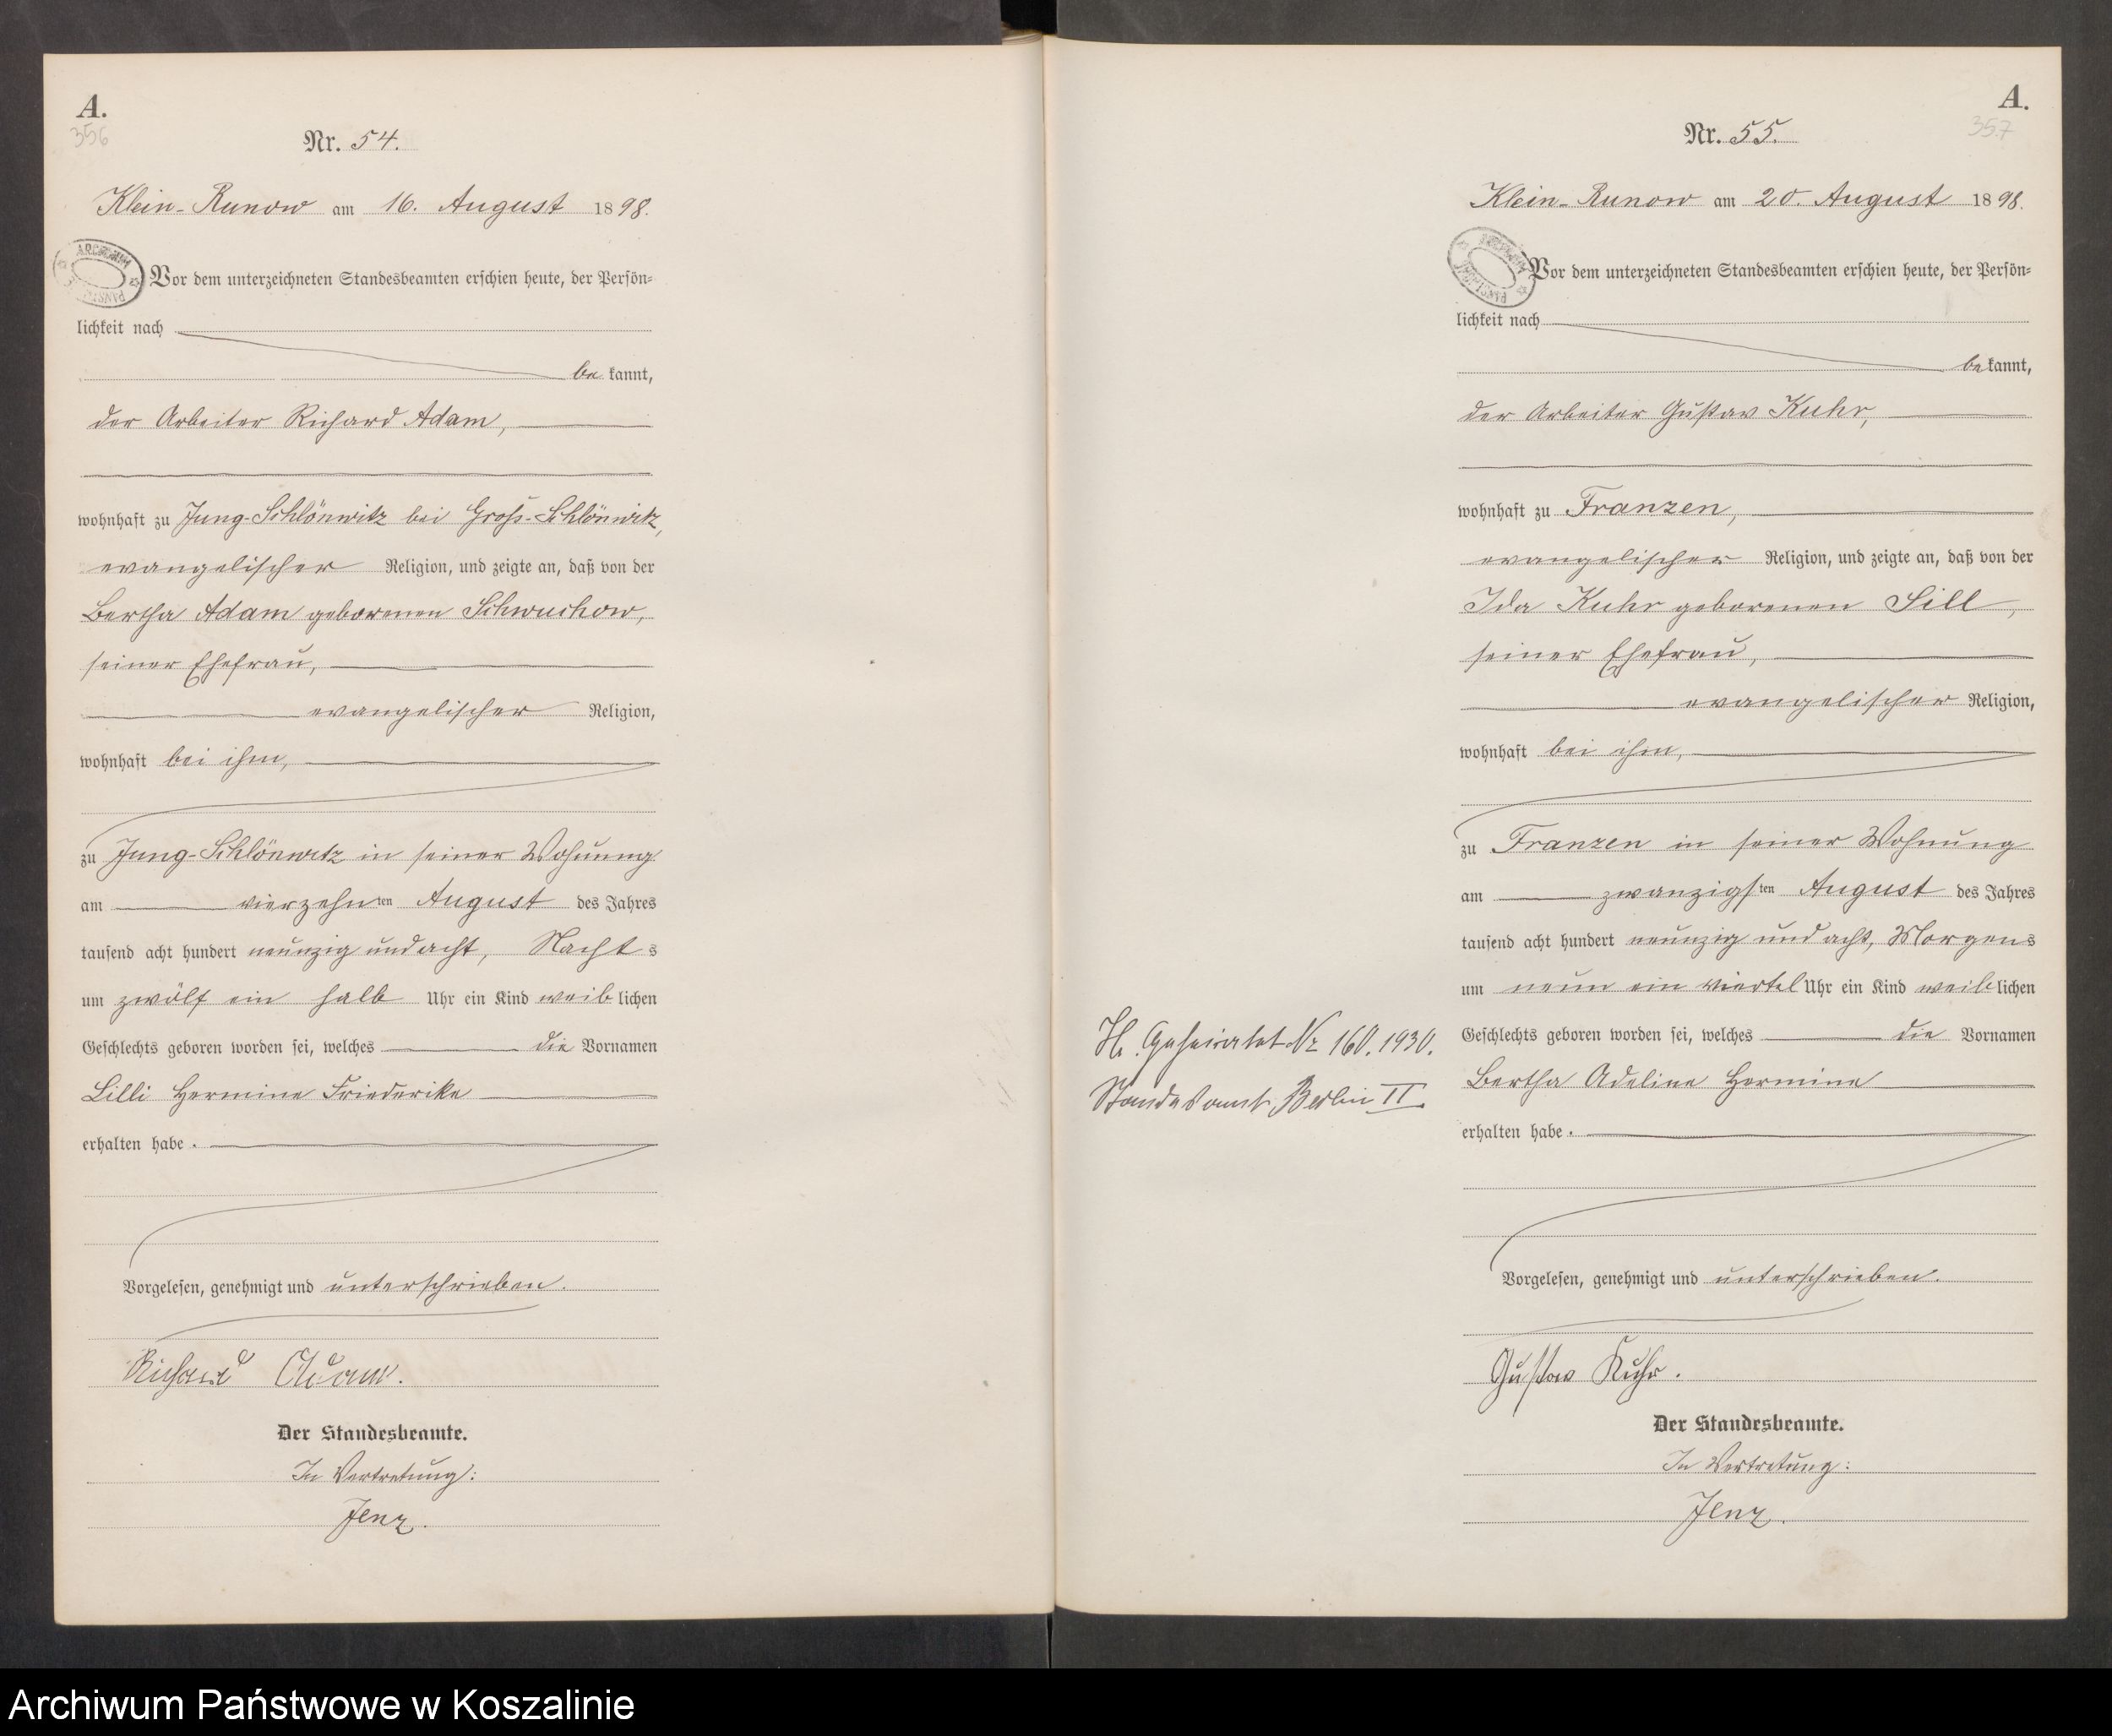 A.
356
Nr. 54.
Klein-Runow am 16. August 1898.
Vor dem unterzeichneten Standesbeamten erschien heute, der Persön=
lichkeit nach
be kannt,
der Arbeiter Richard Adam,
wohnhaft zu Jung-Schlönwitz bei Gross-Schlönwitz,
evangelischer Religion, und zeigte an, daß von der
Bertha Adam geborenen Schwuchow,
seiner Ehefrau,
evangelischer Religion,
wohnhaft bei ihm,
zu Jung-Schlönwitz in seiner Wohnung
am vierzehn ten August des Jahres
tausend acht hundert neunzig und acht, Nacht s
um zwölf ein halb Uhr ein Kind weib lichen
Geschlechts geboren worden sei, welches die Vornamen
Lilli Hermine Friederike
erhalten habe.
Vorgelesen, genehmigt und unterschrieben.
Richard Adam.
Der Standesbeamte.
In Vertretung:
Jenz.
A.
357
Nr. 55.
Klein-Runow am 20. August 1898.
ARCHIWUM
Vor dem unterzeichneten Standesbeamten erschien heute, der Persön=
lichkeit nach
be kannt,
der Arbeiter Gustav Kuhr,
wohnhaft zu Franzen,
evangelischer Religion, und zeigte an, daß von der
Ida Kuhr geborenen Sill,
seiner Ehefrau,
evangelischer Religion,
wohnhaft bei ihm,
zu Franzen in seiner Wohnung
am zwanzigs ten August des Jahres
tausend acht hundert neunzig und acht, Morgen s
um neun ein viertel Uhr ein Kind weib lichen
Geschlechts geboren worden sei, welches die Vornamen
Bertha Adeline Hermine
erhalten habe.
Geheiratet Nr 160. 1930.
Standesamt Berlin II.
Vorgelesen, genehmigt und unterschrieben.
Gustav Kuhr.
Der Standesbeamte.
In Vertretung:
Jenz.
Archiwum Państwowe w Koszalinie